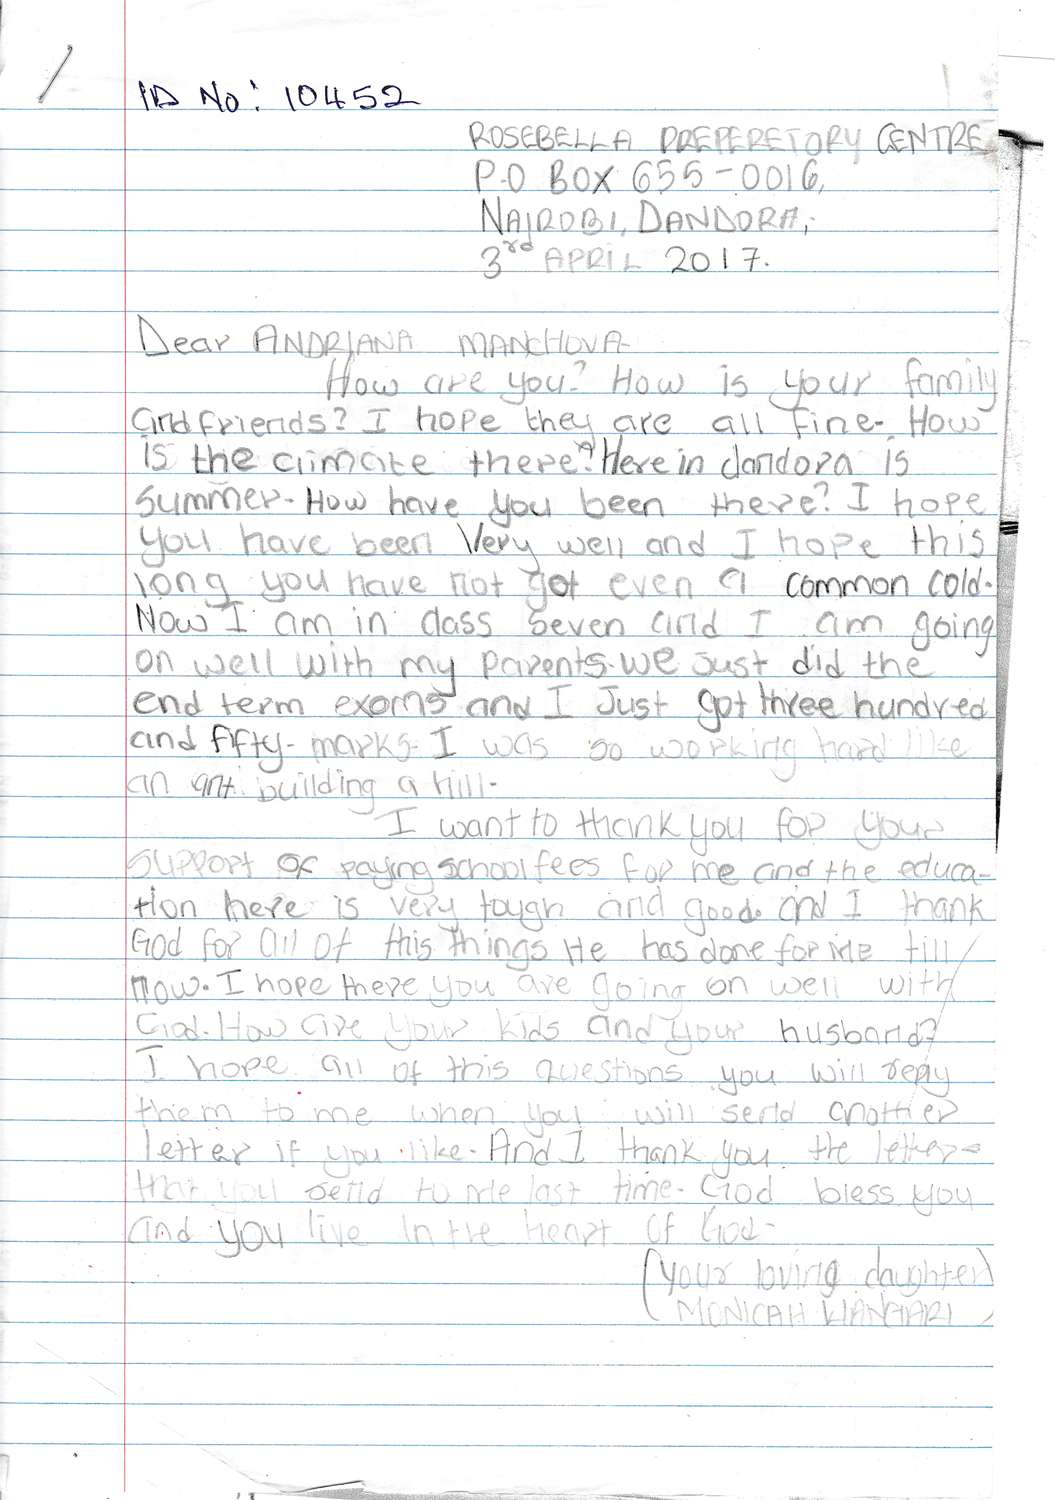 ID No: 10452
ROSEBELLA PREPERETORY CENTRE
P.O BOX 655-0016,
NAIROBI, DANDORA,
3rd APRIL 2017.
Dear ANDRIANA MANCHOVA-
How are you? How is your family
and friends? I hope they are all fine. How
is the climate there? Here in dandora is
summer. How have you been there? I hope
you have been Very well and I hope this
long you have not got even a common cold.
Now I am in class seven and I am going
on well with my parents. we Just did the
end term exams and I Just got three hundred
and fifty- marks. I was so working hard like
an ant building a hill.
I want to thank you for your
support of paying school fees for me and the educa-
tion here is very tough and good. and I thank
God for all of this things He has done for me till
now. I hope there you are going on well with
God. How are your kids and your husband?
I hope all of this questions you will reply
them to me when you will send another
letter if you like. And I thank you the letter
that you send to me last time. God bless you
and you live in the heart of God-
(your loving daughter)
MONICAH